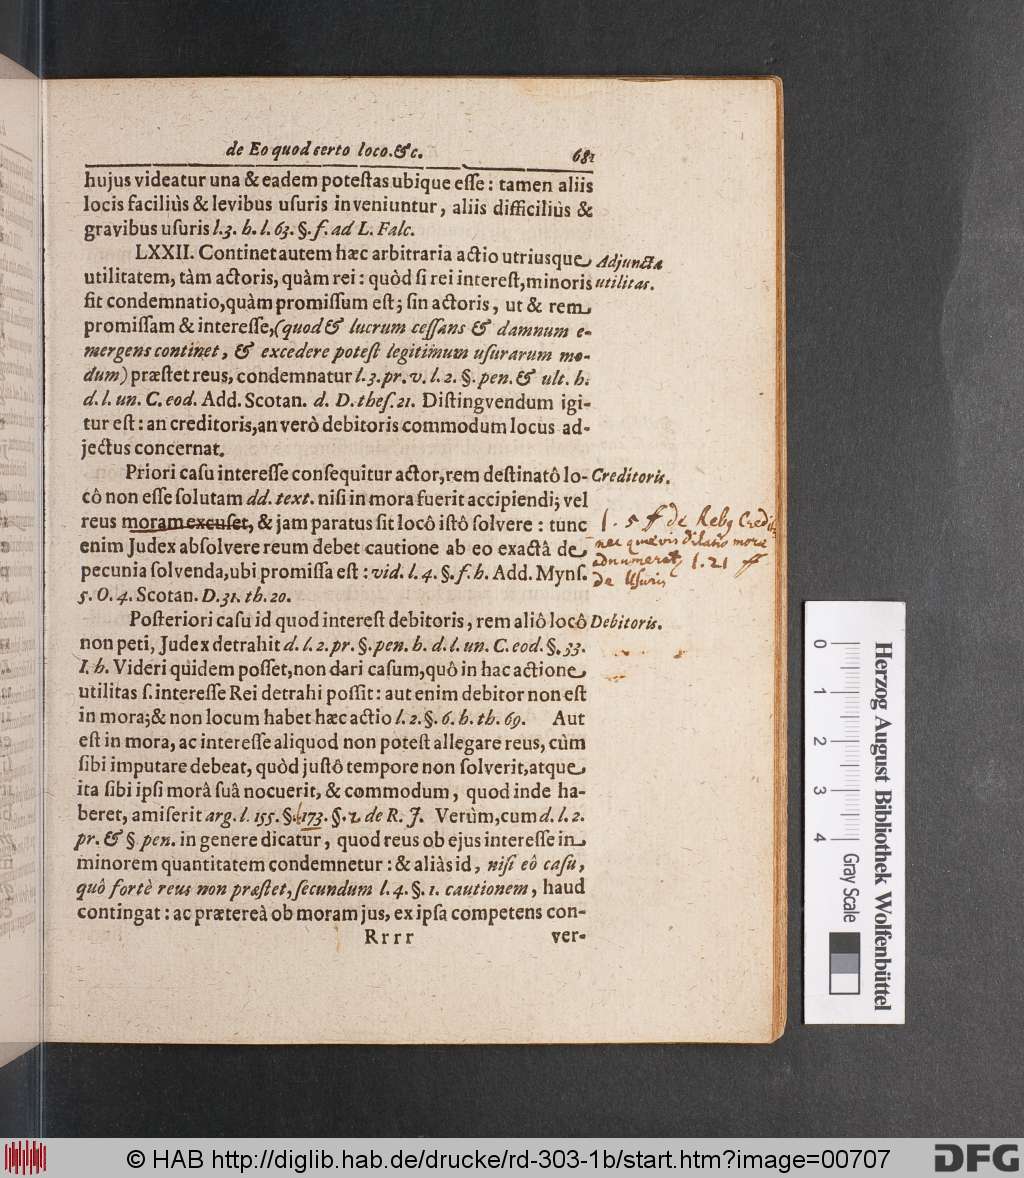 de Eo quod certo loco. &c. 681
hujus videatur una & eadem poteſtas ubique eſſe: tamen aliis
locis faciliùs & levibus uſuris inveniuntur, aliis difficiliùs &
gravibus uſuris l. 3. h. l. 63. §. f. ad L. Falc.
LXXII. Continet autem hæc arbitraria actio utriusque
Adjuncta
utilitatem, tàm actoris, quàm rei: quòd ſi rei intereſt, minoris
utilitas.
fit condemnatio, quàm promiſſum eſt; ſin actoris, ut & rem
promiſſam & intereſſe, (quod & lucrum ceſſans & damnum e-
mergens continet, & excedere poteſt legitimum uſurarum mo-
dum) præſtet reus, condemnatur l. 3. pr. v. l. 2. §. pen. & ult. h.
d. l. un. C. eod. Add. Scotan. d. D. theſ. 21. Diſtingvendum igi-
tur eſt: an creditoris, an verò debitoris commodum locus ad-
jectus concernat.
Priori caſu intereſſe conſequitur actor, rem deſtinatô lo-
Creditoris.
cô non eſſe ſolutam dd. text. niſi in mora fuerit accipiendi; vel
reus moram excuſet, & jam paratus ſit locô iſtô ſolvere: tunc
enim Judex abſolvere reum debet cautione ab eo exactâ de
pecunia ſolvenda, ubi promiſſa eſt: vid. l. 4. §. f. h. Add. Mynſ.
5. O. 4. Scotan. D. 31. th. 20.
l. 5 ff de Reb Credit
nec quævis dilatio mora
adnumerat l. 21 ff
de Uſuris
Poſteriori caſu id quod intereſt debitoris, rem aliô locô
Debitoris.
non peti, Judex detrahit d. l. 2. pr. §. pen. h. d. l. un. C. eod. §. 33.
I. h. Videri quidem poſſet, non dari caſum, quô in hac actione
utilitas ſ. intereſſe Rei detrahi poſſit: aut enim debitor non eſt
in mora; & non locum habet hæc actio l. 2. §. 6. h. th. 69. Aut
eſt in mora, ac intereſſe aliquod non poteſt allegare reus, cùm
ſibi imputare debeat, quòd juſtô tempore non ſolverit, atque
ita ſibi ipſi morâ ſuâ nocuerit, & commodum, quod inde ha-
beret, amiſerit arg. l. 155. §. l. 173. §. 2. de R. J. Verùm, cum d. l. 2.
pr. & § pen. in genere dicatur, quod reus ob ejus intereſſe in
minorem quantitatem condemnetur: & aliàs id, niſi eô caſu,
quô fortè reus non præſtet, ſecundum l. 4. §. 1. cautionem, haud
contingat: ac prætereà ob moram jus, ex ipſa competens con-
Rrrr ver-
Herzog August Bibliothek Wolfenbüttel
0 1 2 3 4 Gray Scale
© HAB http://diglib.hab.de/drucke/rd-303-1b/start.htm?image=00707
DFG